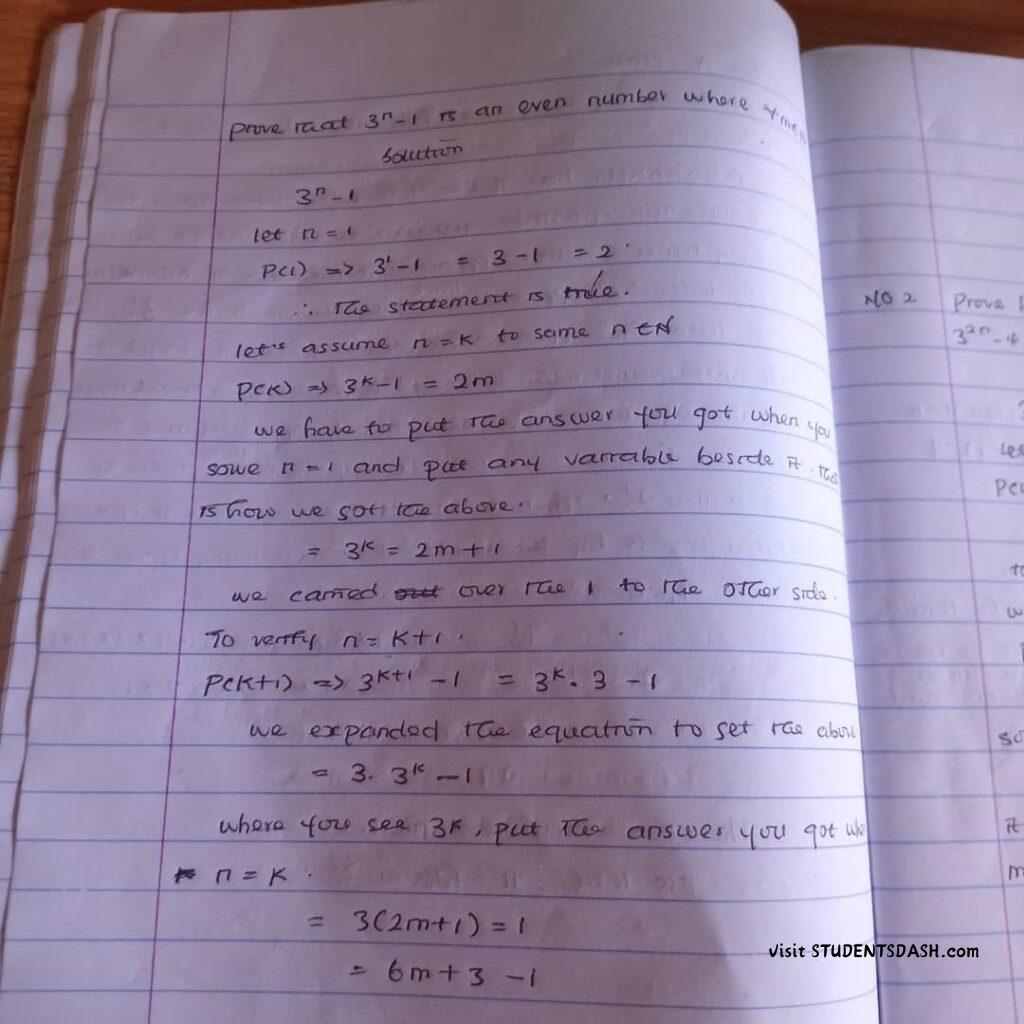 Prove that 3ⁿ-1 is an even number where
Solution
3ⁿ-1
let n=1
P(1) => 3¹-1 = 3-1 = 2
∴ The statement is true.
let's assume n=k to some n∈N
P(k) => 3ᵏ-1 = 2m
we have to put the answer you got when you
solve n=1 and put any variable beside it. That
is how we got the above.
= 3ᵏ = 2m+1
we carried out over the 1 to the other side.
To verify n=k+1.
P(k+1) => 3ᵏ⁺¹ -1 = 3ᵏ. 3 -1
we expanded the equation to get the above
= 3. 3ᵏ -1
where you see 3k, put the answer you got
n=k.
= 3(2m+1)=1
= 6m+3 -1
NO 2 Prove
3²ⁿ-4
visit STUDENTSDASH.com